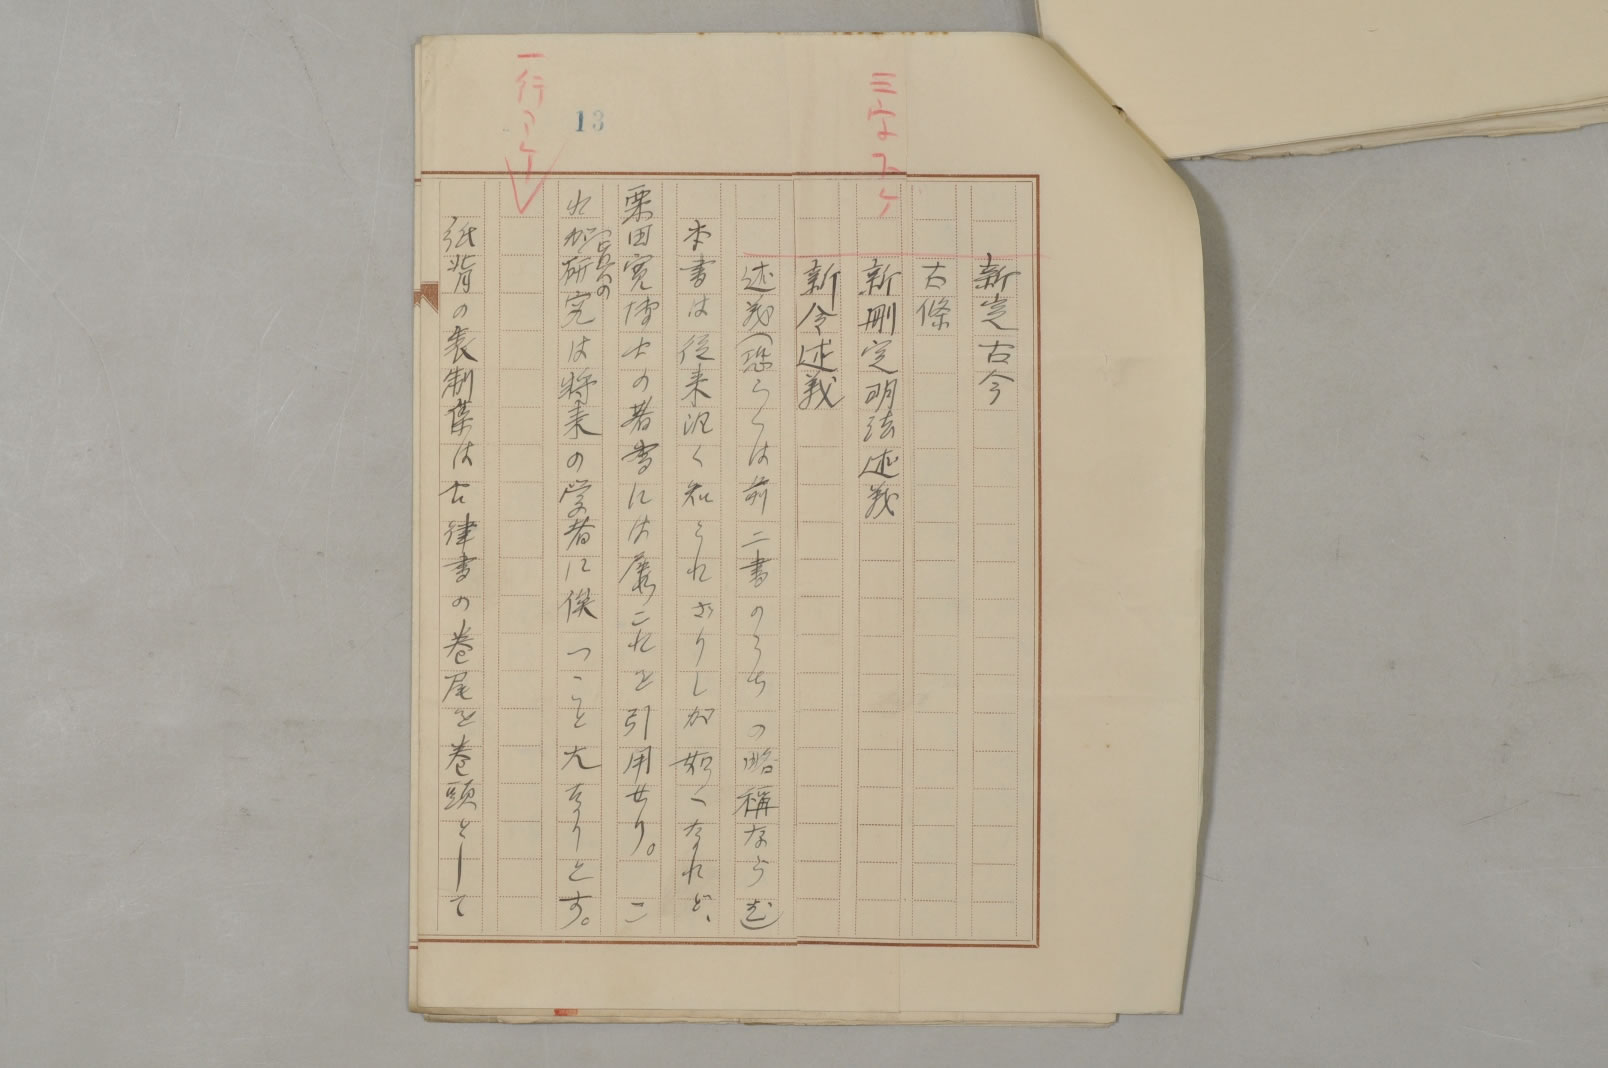 三字下ケ
新定古今
古條
新刪定明法述義
新令述義
述義(恐らくは前二書のうちの略称ならむ)
本書は従来汎く知られざりしが如くなれど、
栗田寛博士の著書には屡これを引用せり。こ
れが
内容の
研究は将来の学者に俟つこと大なりとす。
13
一行アケ
紙背の表制集は古律書の巻尾を巻頭として